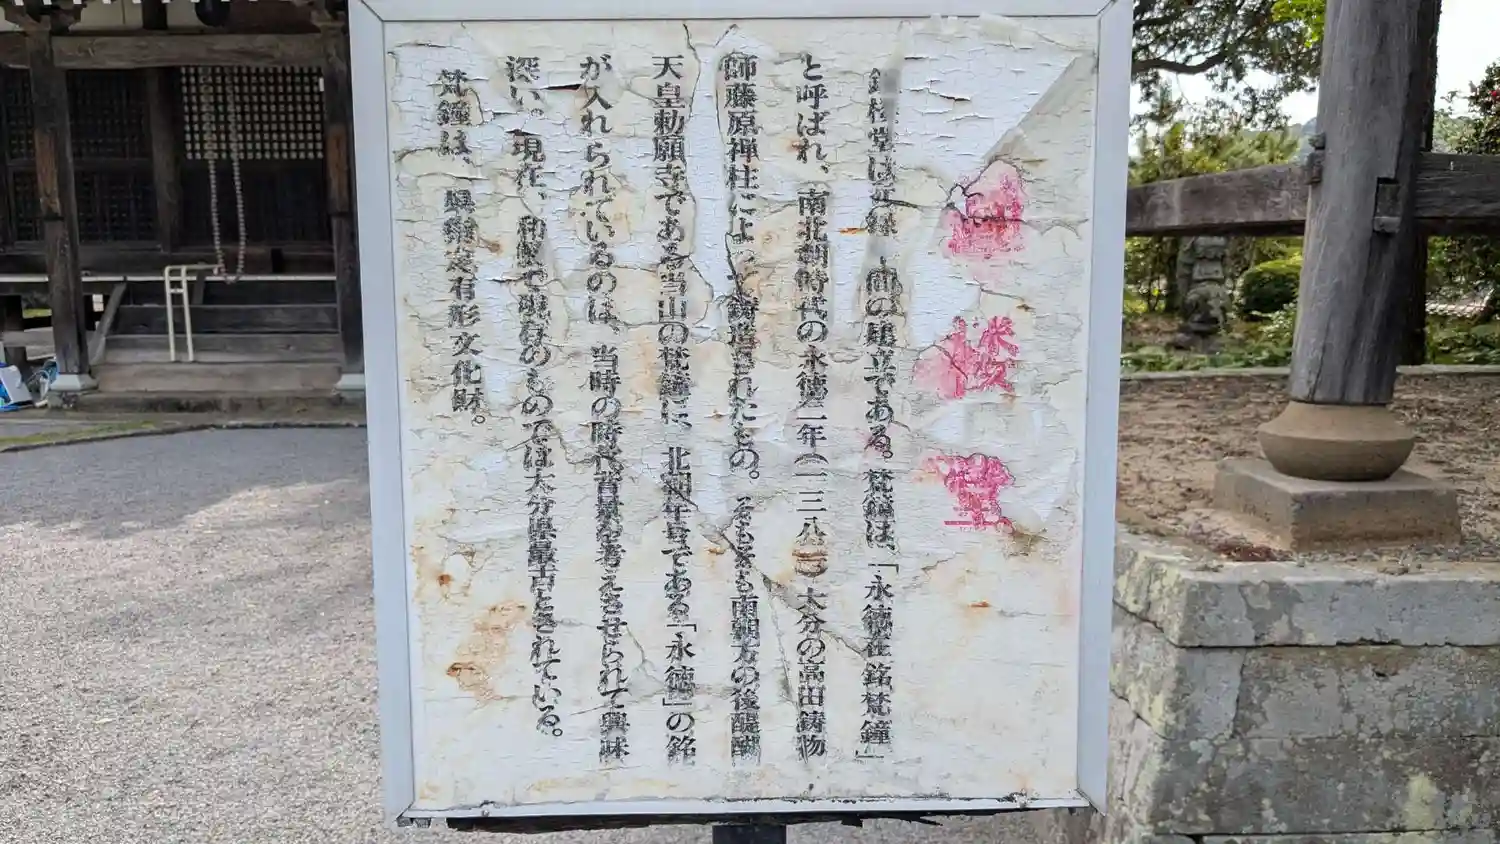 鐘楼堂
鐘楼堂は　　　間の建立である。梵鐘は、「永徳在銘梵鐘」
と呼ばれ、南北朝時代の永徳二年（一三八二）大分の高田鋳物
師藤原禅柱によって鋳造されたもの。そもそも南朝方の後醍醐
天皇勅願寺である当山の梵鐘に、北朝年号である「永徳」の銘
が入れられているのは、当時の時代背景を考えさせられて興味
深い。現在、和鐘で現存のものでは大分県最古とされている。
梵鐘は、県指定有形文化財。